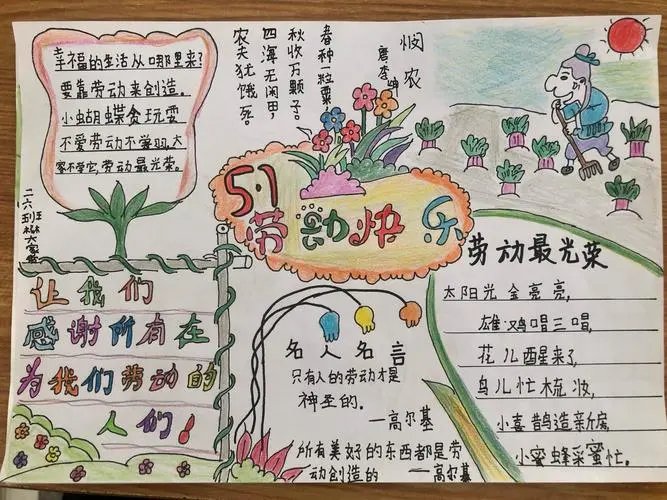 幸福的生活从哪里来?
要靠劳动来创造。
小蝴蝶贪玩耍
不爱劳动不学习,大
家不学它,劳动最光荣。
悯农
唐李绅
春种一粒粟,
秋收万颗子。
四海无闲田,
农夫犹饿死。
5.1
劳动快乐
二六班
让我们
感谢所有在
为我们劳动的
人们!
名人名言
只有人的劳动才是
神圣的.
—高尔基
所有美好的东西都是劳
动创造的
—高尔基
劳动最光荣
太阳光金亮亮,
雄鸡唱三唱,
花儿醒来了,
鸟儿忙梳妆,
小喜鹊造新房,
小蜜蜂采蜜忙。